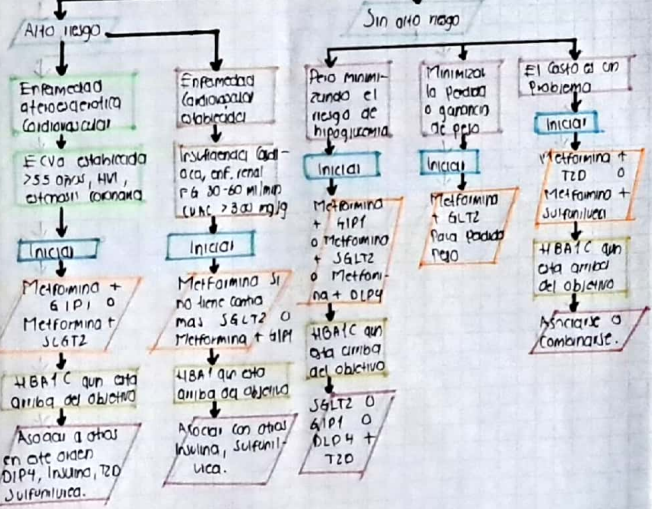 Alto riesgo
Sin alto riesgo
Enfermedad
ateroesclerotica
Cardiovascular
ECVa establecida
>55 años, HVI,
estenosis coronaria
Iniciar
Metformina +
GIP1 O
Metformina +
SGLT2
HBA1C aun esta
arriba del objetivo
Asociar a otros
en este orden
DIP4, Insulina, T2D
Sulfunilurica.
Enfermedad
Cardiovascular
establecida
Insuficiencia Cardi-
aca, enf. renal
FG 30-60 ml/min
CUAC >300 mg/g
Iniciar
Metformina si
no tiene contra
mas SGLT2 O
Metformina + GIP1
HBA1 aun esta
arriba del objetivo
Asociar con otros
Insulina, Sulfunil-
urica.
Pero minimi-
zando el
riesgo de
hipoglucemia
Iniciar
Metformina
+ GIP1
o Metformina
+ SGLT2
o Metformi-
na + DLP4
HBA1C aun
esta arriba
del objetivo
SGLT2 O
GIP1 O
DLP4 +
T2D
Minimizar
la perdida
o ganancia
de peso
Iniciar
Metformina
+ GLT2
Para perdida
peso
El Costo es un
Problema
Iniciar
Metformina +
T2D O
Metformina +
Sulfunilurica
HBA1C aun
esta arriba
del objetivo
Asociarse o
combinarse.